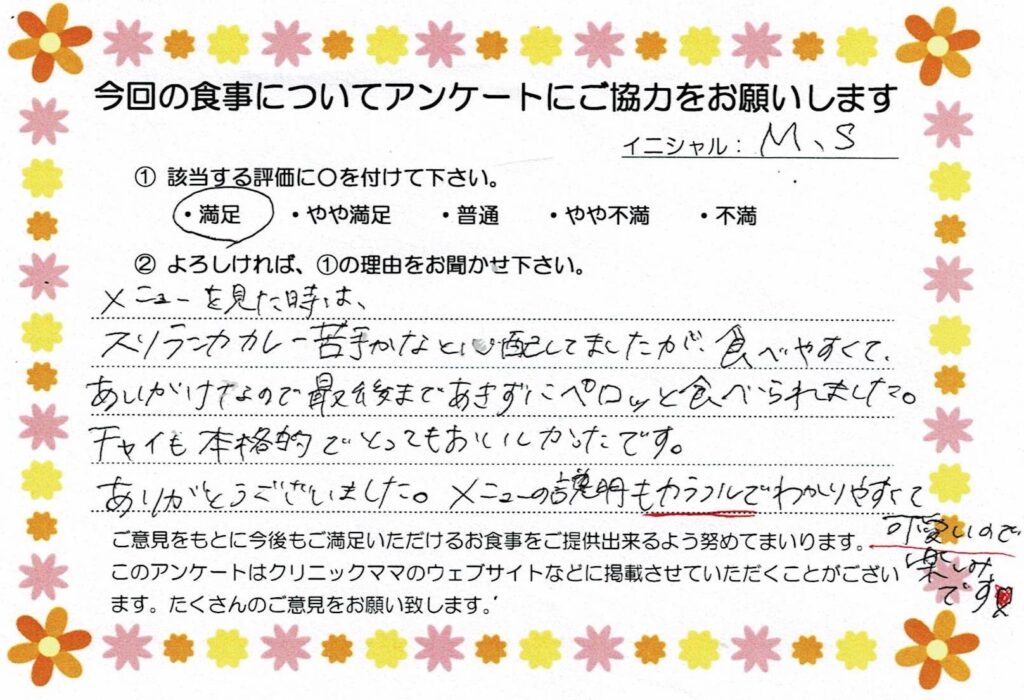 今回の食事についてアンケートにご協力をお願いします
イニシャル： M、S
① 該当する評価に〇を付けて下さい。
・満足 ・やや満足 ・普通 ・やや不満 ・不満
② よろしければ、①の理由をお聞かせ下さい。
メニューを見た時は、
スリランカカレー苦手かなと心配してましたが、食べやすくて、
あいがけなので最後まであきずにペロッと食べられました。
チャイも本格的でとってもおいしかったです。
ありがとうございました。メニューの説明もカラフルでわかりやすくて
可愛いので
楽しみ
です
ご意見をもとに今後もご満足いただけるお食事をご提供出来るよう努めてまいります。
このアンケートはクリニックママのウェブサイトなどに掲載させていただくことがござい
ます。たくさんのご意見をお願い致します。